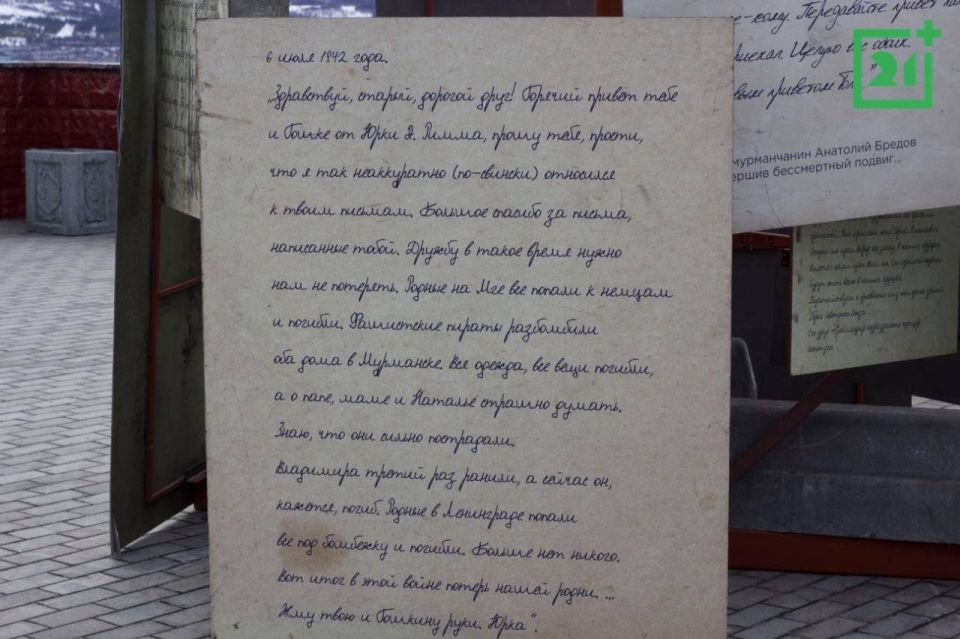 6 июля 1942 года.
„Здравствуй, старый, дорогой друг! Горячий привет тебе
и Гошке от Юрки Н. Римма, прошу тебя, прости,
что я так неаккуратно (по-свински) относился
к твоим письмам. Большое спасибо за письма,
написанные тобой. Дружбу в такое время нужно
нам не потерять. Родные на Мге все попали к немцам
и погибли. Фашистские пираты разбомбили
оба дома в Мурманске. Вся одежда, все вещи погибли,
а о папе, маме и Наталье страшно думать.
Знаю, что они сильно пострадали.
Владимира третий раз ранили, а сейчас он,
кажется, погиб. Родные в Ленинграде попали
все под бомбежку и погибли. Больше нет никого.
Вот итог в этой войне потерь нашей родни. ...
Жму твою и Гошкину руки. Юрка".
Передавайте привет
приехал. Целую вас
приветом
мурманчанин Анатолий Бредов
ершив бессмертный подвиг...
21+